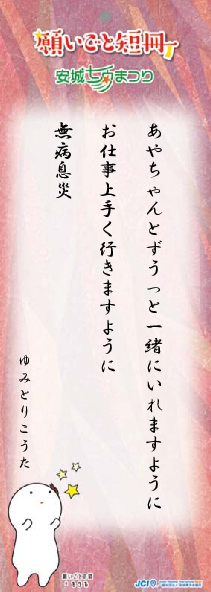 願いごと短冊
安城七夕まつり
あやちゃんとずうっと一緒にいれますように
お仕事上手く行きますように
無病息災
ゆみとりこうた
願いごと短冊
JCI